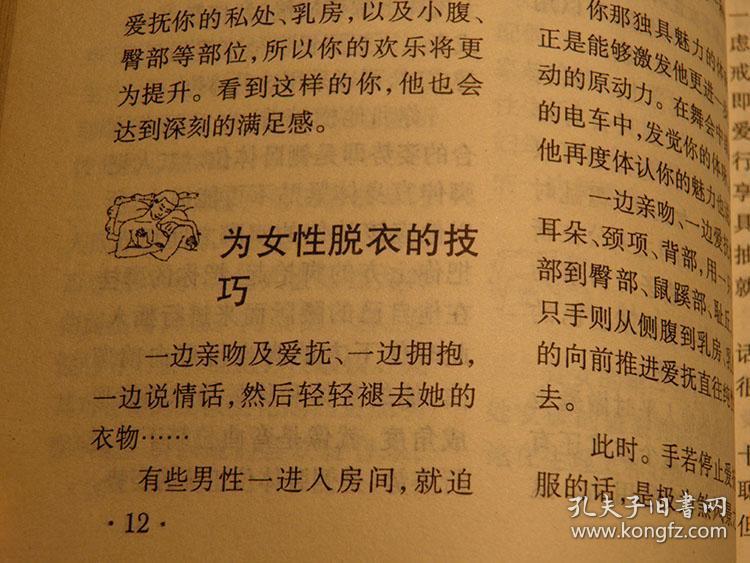 爱抚你的私处、乳房，以及小腹、
臀部等部位，所以你的欢乐将更
为提升。看到这样的你，他也会
达到深刻的满足感。
为女性脱衣的技
巧
一边亲吻及爱抚、一边拥抱，
一边说情话，然后轻轻褪去她的
衣物……
有些男性一进入房间，就迫
·12·
你那独具魅力的体
正是能够激发他更进一步
动的原动力。在舞会中
的电车中，发觉你的体
他再度体认你的魅力
一边亲吻、一边爱抚
耳朵、颈项、背部，用一
部到臀部、鼠蹊部、耻丘
只手则从侧腹到乳房、
的向前推进爱抚直往
去。
此时。手若停止爱
服的话，是极
虑
戒
即
爱
行
享
具
抽
就
话
很
取
但
孔夫子旧书网
www.kongfz.com